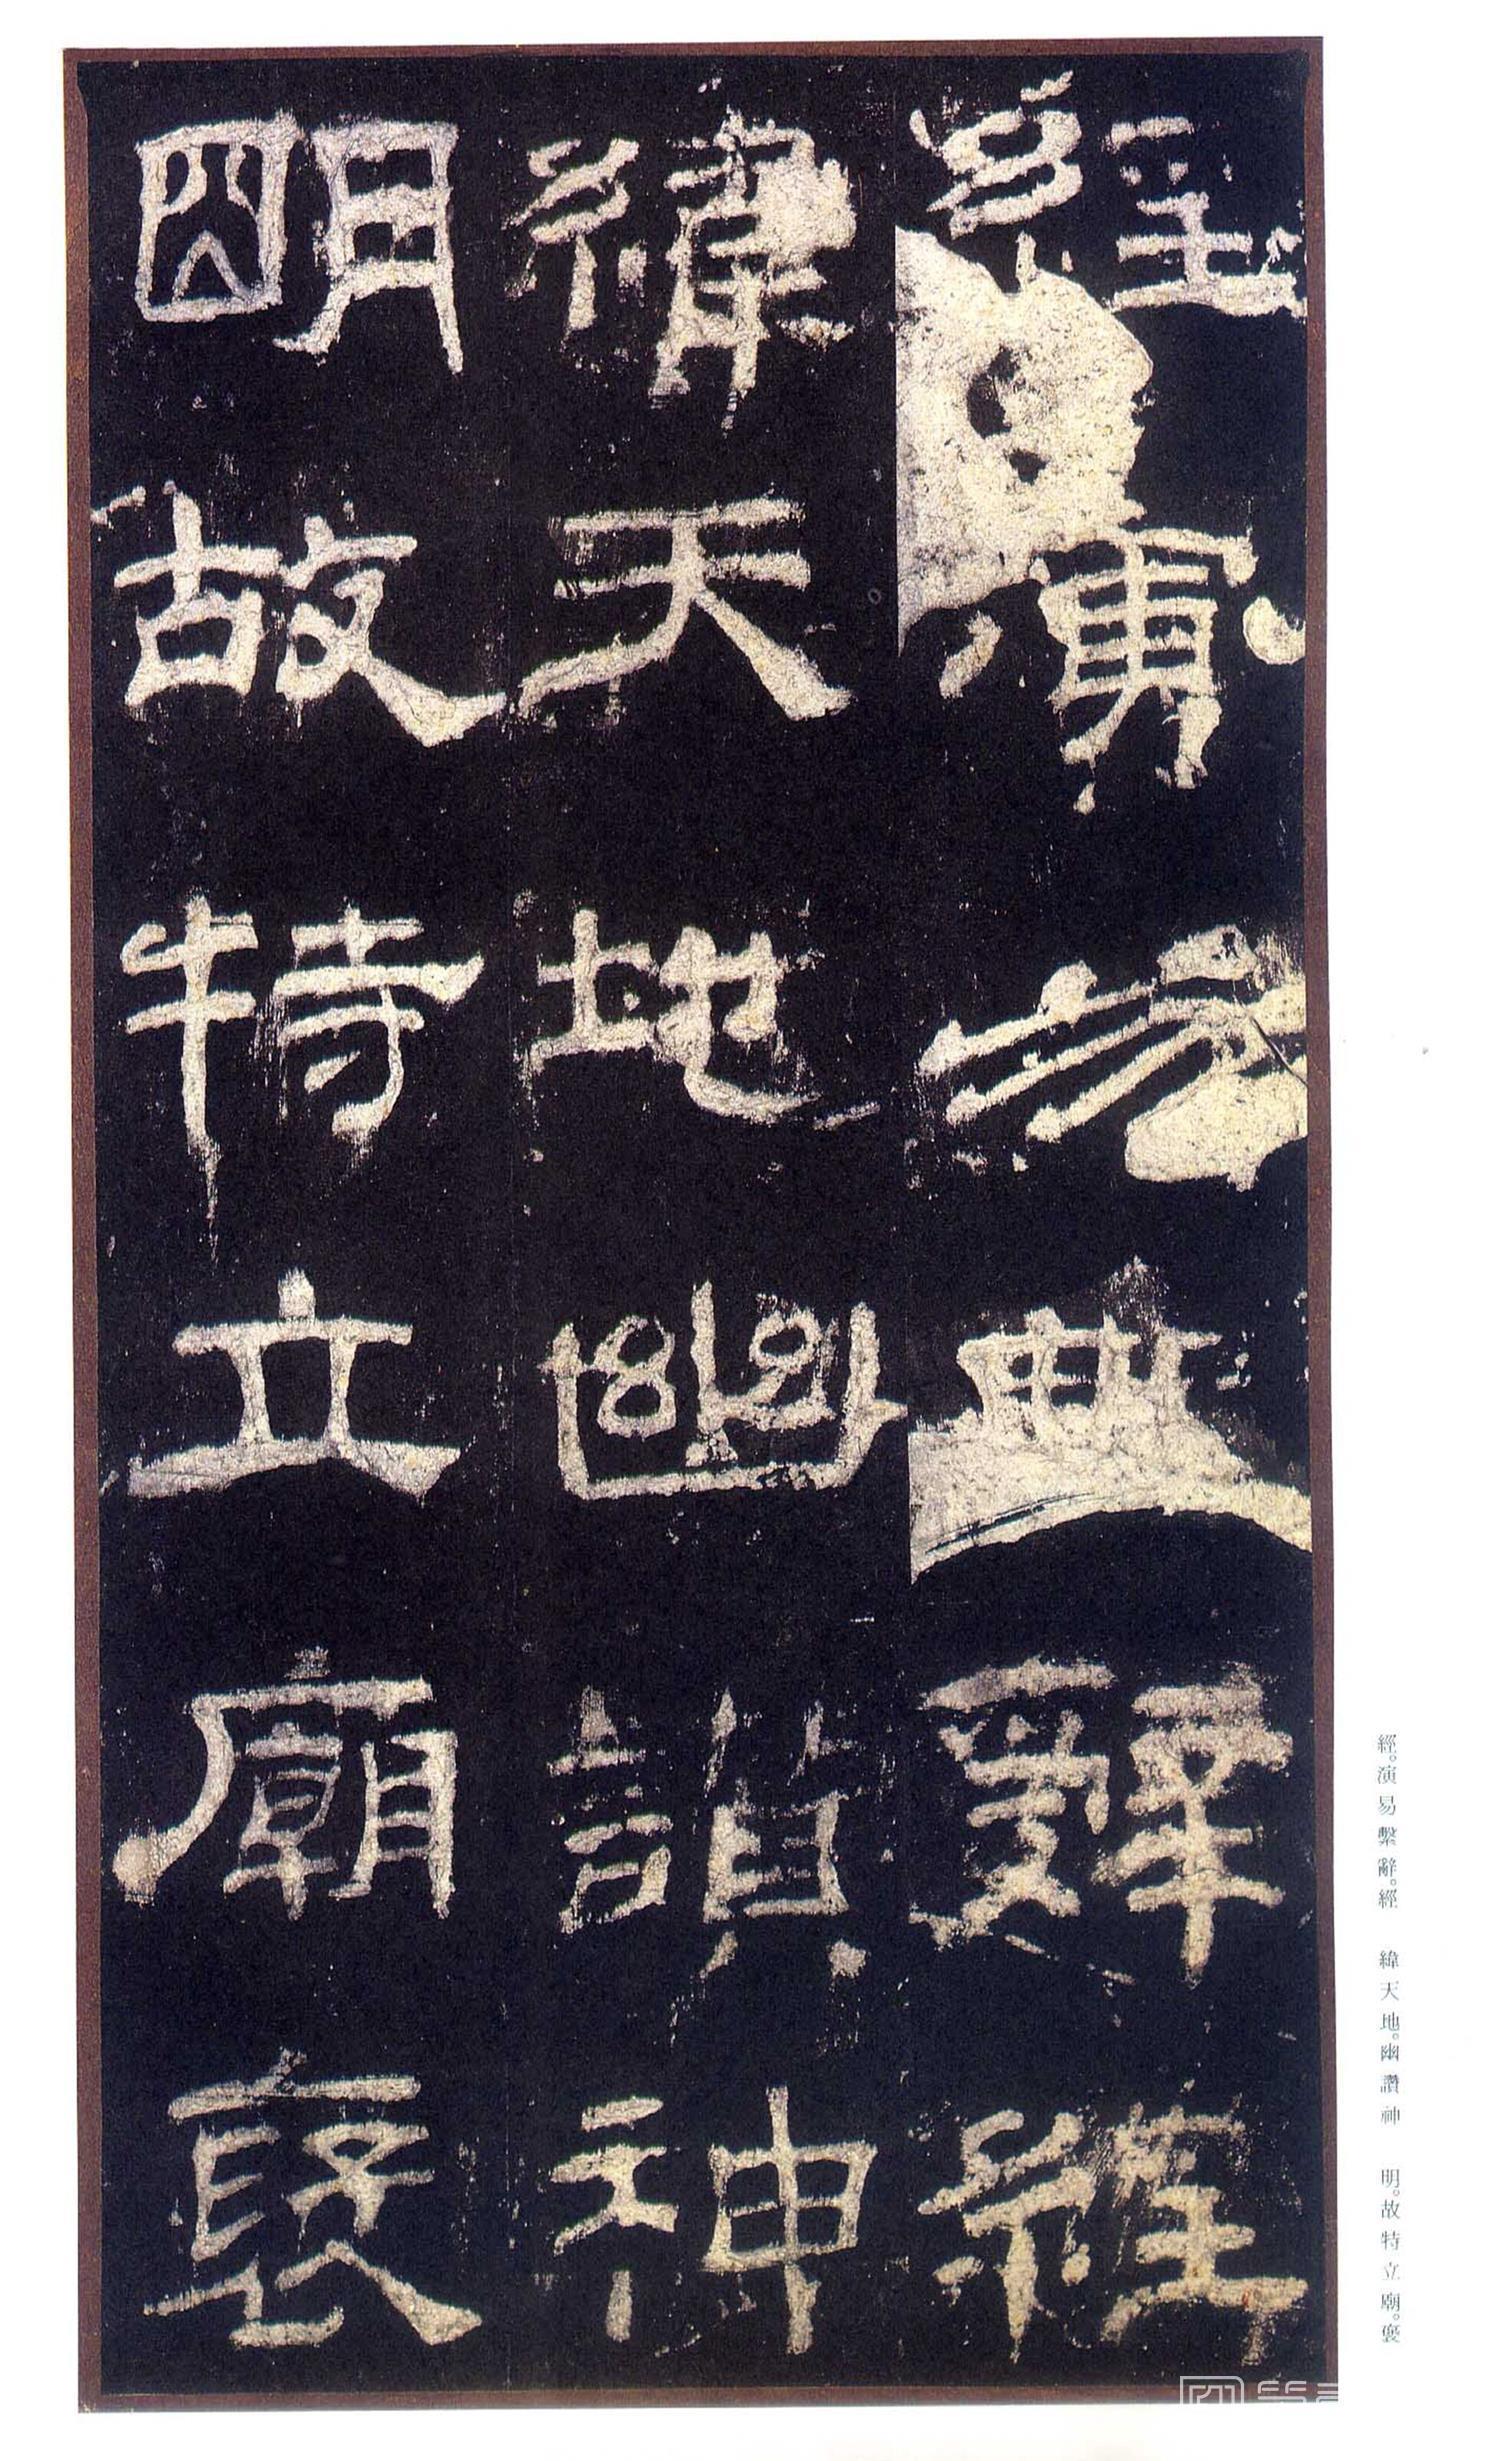 經演易繫辭經
緯天地幽讚神
明故特立廟褒
經。演易繫辭。經　緯天地。幽讚神　明。故特立廟。褒